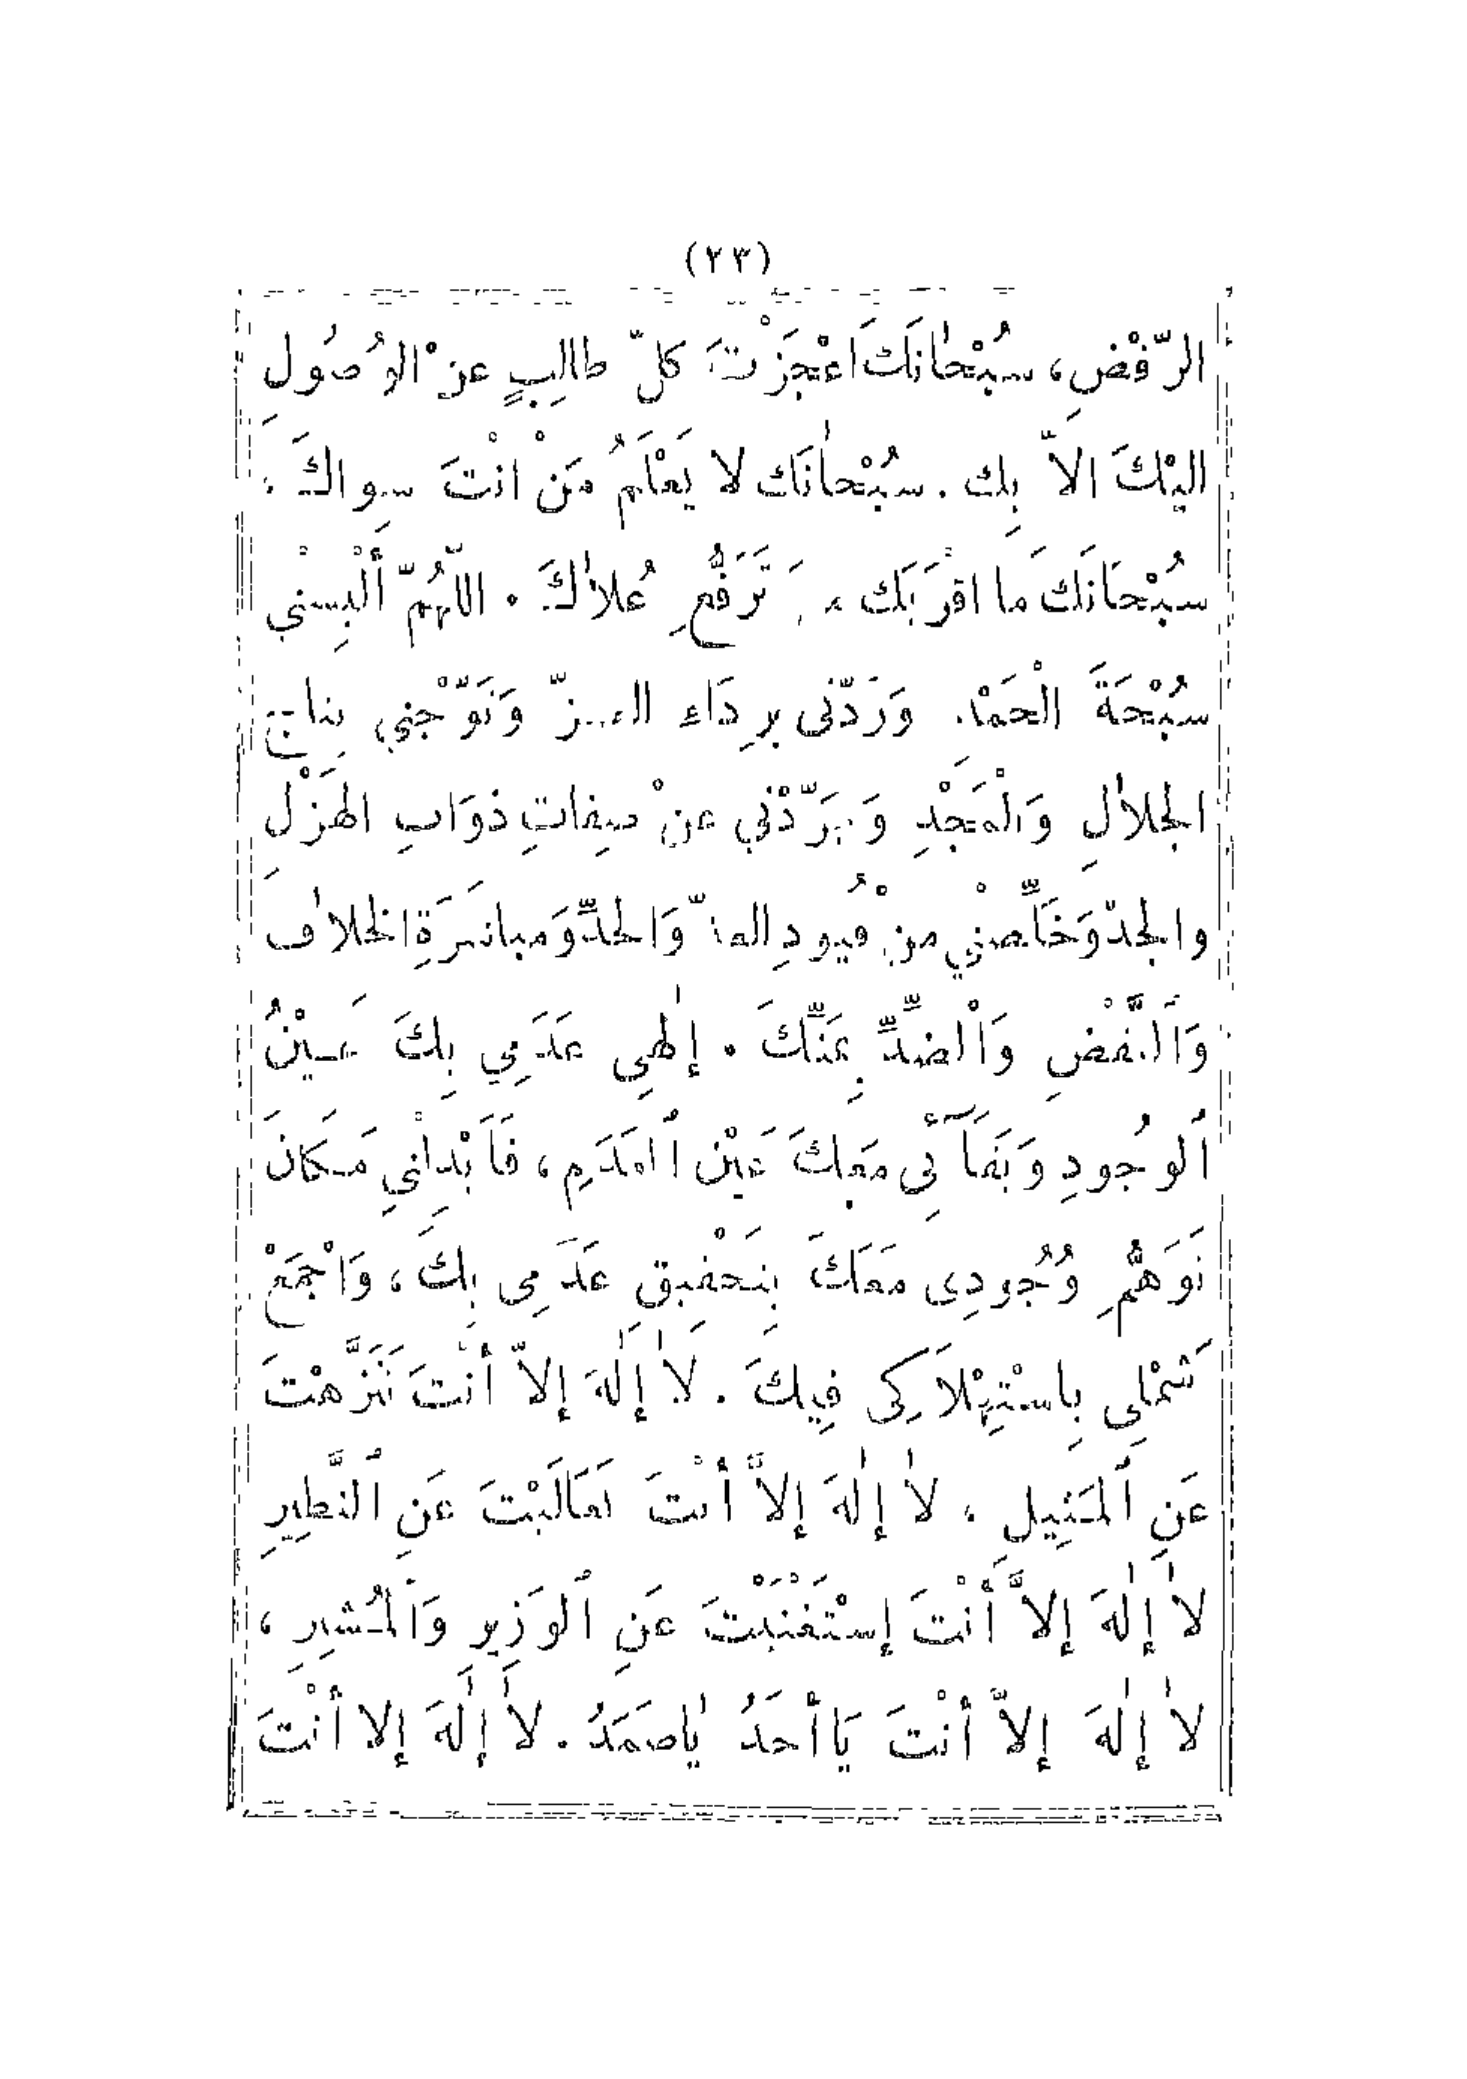 (٢٣)
الرّفْضِ، سُبْحٰانَكَ اَعْجَزْتَ كلّ طالِبٍ عنْ الوُصُولِ
اليْكَ الاّ بِك . سُبْحٰانَك لا يَعْلَمُ مَنْ انْتَ سِواكَ .
سُبْحَانَكَ مَا اقْرَبَك مَعَ تَرَفُّعِ عُلاٰكَ . اللّهُمّ أَلْبِسْني
سُبْحَةَ الْحَمْدِ. وَرَدّنى بِرِدَاءِ العِزّ وَتَوّجْني بِتاجِ
الجلاٰلِ وَالْمَجْدِ وَجَرّدْني عنْ صِفاتِ ذوَاتِ الهَزْلِ
والجدّ وَخَلِّصْني مِنْ قُيودِ العدّ وَالحدِّ وَمباشَرَةِ الخلاٰف
وَٱلنَّقْضِ وَٱلْضِدِّ بِمَنِّكَ . إلٰهِى عَدَمِي بِكَ عَيْنُ
ٱلوُجودِ وَبَقَآئِى مَعَكَ عَيْن ٱلعَدَمِ، فَأَبْدِلْني مَكَانَ
تَوَهُّمِ وُجُودِى مَعَكَ بِتَحْقِيقِ عَدَمِى بِكَ، وَاْجْمَعْ
شَمْلِي بِاسْتِهْلاَكِى فِيكَ . لاٰ إلٰهَ إلاّ أنْتَ تَنَزَّهْتَ
عَنِ ٱلمَثِيل ، لاٰ إلٰهَ إلاّ أنْتَ تَعَالَيْتَ عَنِ ٱلنَّظِيرِ
لاٰ إلٰهَ إلاَّ أَنْتَ إسْتَغْنَيْتَ عَنِ ٱلوَزِيرِ وَٱلمُشِيرِ ،
لاٰ إلٰهَ إلاّ أنْتَ يَا أحَدُ يٰاصَمَدُ . لاٰ إلٰهَ إلا أنْتَ